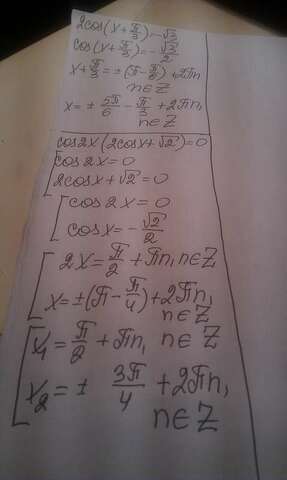 2cos(x+π/3)=-√3
cos(x+π/3)=-√3/2
x+π/3=±(π-π/6)+2πn,
n∈Z
x=±5π/6-π/3+2πn,
n∈Z
cos2x(2cosx+√2)=0
[cos2x=0
2cosx+√2=0
[cos2x=0
cosx=-√2/2
[2x=π/2+πn, n∈Z
x=±(π-π/4)+2πn,
n∈Z
[x₁=π/2+πn, n∈Z
x₂=± 3π/4+2πn,
n∈Z